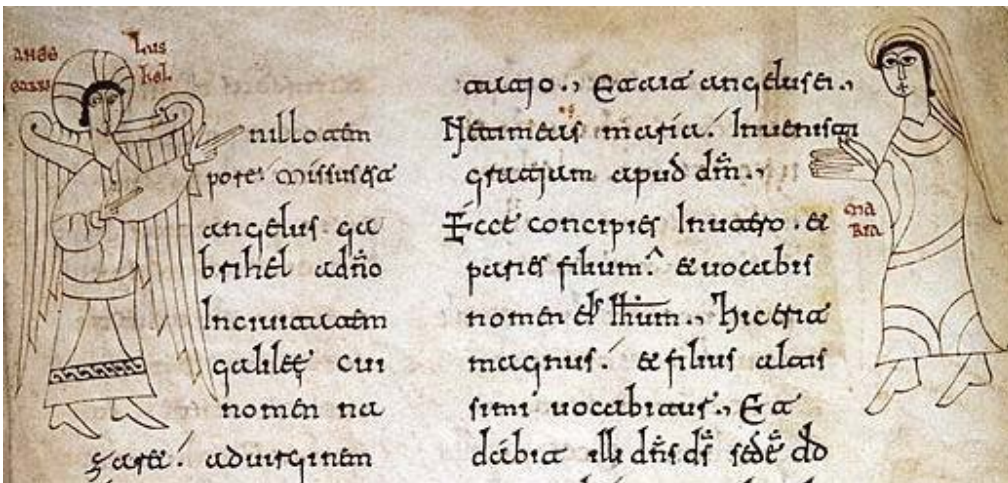 ANGE LUS
GABRI HEL
n illo tem
pore. missus est
angelus ga
brihel a dno
In ciuitatem
galileę cui
nomen na
zaret. ad uirginem
tatjo., Et ait angelus ei.,
Ne timeas maria. Inuenisti
gratjam apud dnm.,
Ecce concipies In utero. et
paries filium. et uocabis
nomen eius Ihm., hic erit
magnus. et filius altis
simi uocabitur., Et
dabit illi dns ds sede dd
MA
RIA